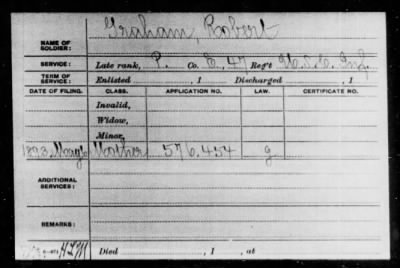 Graham, Robert
NAME OF SOLDIER:
SERVICE: Late rank, P. Co. E, 47 Reg't U.S.C. Inf.
TERM OF SERVICE: Enlisted , 1 Discharged , 1
DATE OF FILING. CLASS. APPLICATION NO. LAW. CERTIFICATE NO.
Invalid,
Widow,
Minor,
1893, May 6 Mother 576.454 g
ADDITIONAL SERVICES:
REMARKS:
Died , 1 , at